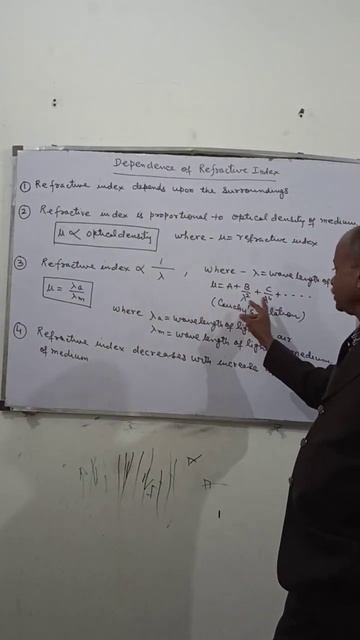 Dependence of Refractive Index
① Refractive index depends upon the surroundings
② Refractive index is proportional to optical density of medium
μ ∝ optical density where - μ = refractive index
③ Refractive index ∝ 1/λ , where - λ = wavelength of
μ = A + B/λ² + C/λ⁴ + ....
μ = λa/λm
(Cauchy's relation)
where λa = wavelength of light air
λm = wavelength of light medium
④ Refractive index decreases with increase
of medium